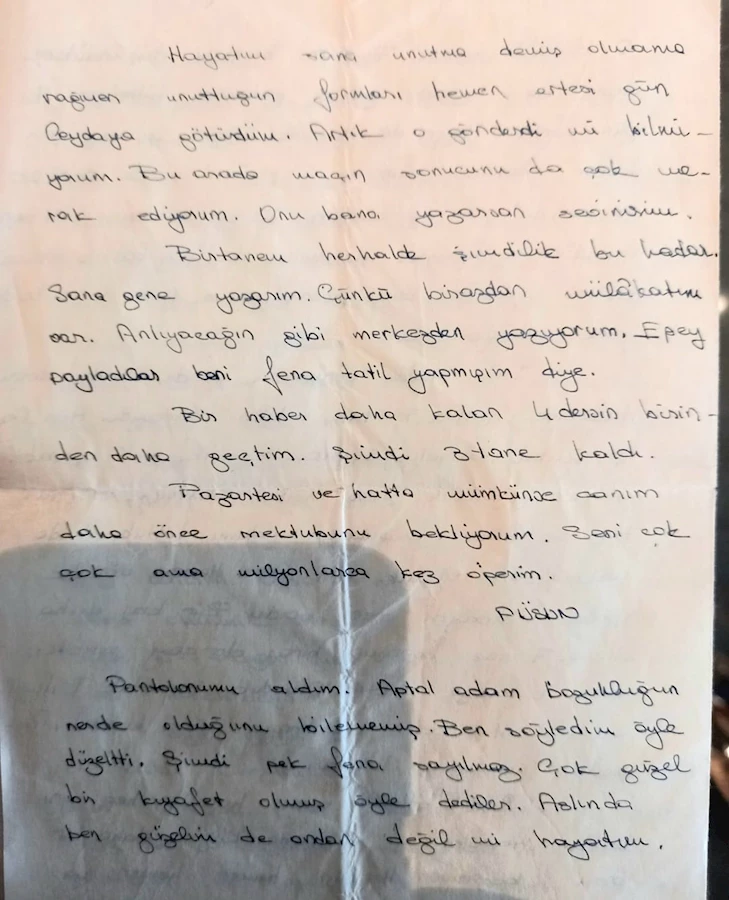 Hayatım sana unutma demiş olmama
rağmen unuttuğun formları hemen ertesi gün
Ceydaya götürdüm. Artık o gönderdi mi bilmi-
yorum. Bu arada maçın sonucunu da çok me-
rak ediyorum. Onu bana yazarsan sevinirim.
Birtanem herhalde şimdilik bu kadar.
Sana gene yazarım. Çünkü birazdan mülâkatım
var. Anlıyacağın gibi merkezden yazıyorum. Epey
payladılar beni fena tatil yapmışım diye.
Bir haber daha kalan 4 dersin birin-
den daha geçtim. Şimdi 3 tane kaldı.
Pazartesi ve hatta mümkünse canım
daha önce mektubunu bekliyorum. Seni çok
çok ama milyonlarca kez öperim.
FÜSUN
Pantolonumu aldım. Aptal adam bozukluğun
nerde olduğunu bilememiş. Ben söyledim öyle
düzeltti. Şimdi pek fena sayılmaz. Çok güzel
bir kıyafet olmuş öyle dediler. Aslında
ben güzelim de ondan değil mi hayatım.